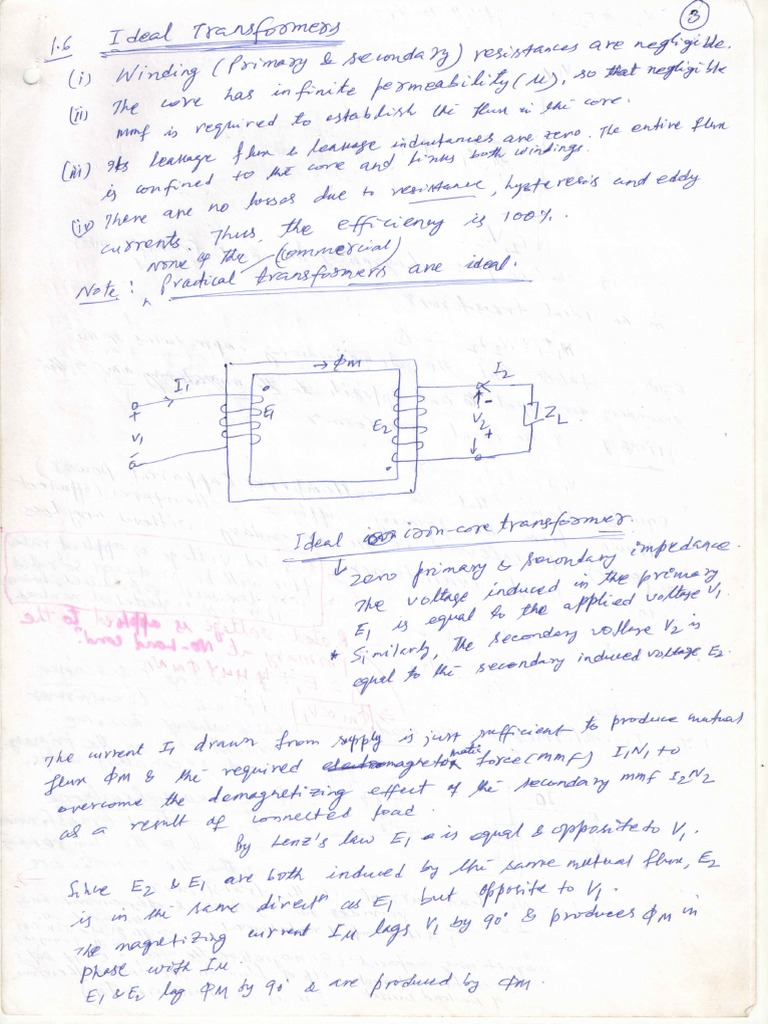 3
1.6 Ideal Transformers
(i) Winding (Primary & secondary) resistances are negligible.
(ii) The core has infinite permeability (μ), so that negligible
mmf is required to establish the flux in the core.
(iii) Its leakage flux & leakage inductances are zero. The entire flux
is confined to the core and links both windings.
(iv) There are no losses due to resistance, hysteresis and eddy
currents. Thus, the efficiency is 100%.
None of the (commercial)
Note: Practical transformers are ideal.
→ ΦM
I1
I2
+
V1
-
E1
E2
-
V2
+
ZL
Ideal iron-core transformer.
↓ Zero primary & secondary impedance.
The voltage induced in the primary
E1 is equal to the applied voltage V1.
* Similarly, the secondary voltage V2 is
equal to the secondary induced voltage E2.
The current I1 drawn from supply is just sufficient to produce mutual
flux ΦM & the required magnetomotive force (mmf) I1N1 to
overcome the demagnetizing effect of the secondary mmf I2N2
as a result of connected load.
By Lenz's law E1 is equal & opposite to V1.
Since E2 & E1 are both induced by the same mutual flux, E2
is in the same directn as E1 but opposite to V1.
The magnetizing current Iμ lags V1 by 90° & produces ΦM in
phase with Iμ.
E1 & E2 lag ΦM by 90° & are produced by ΦM.